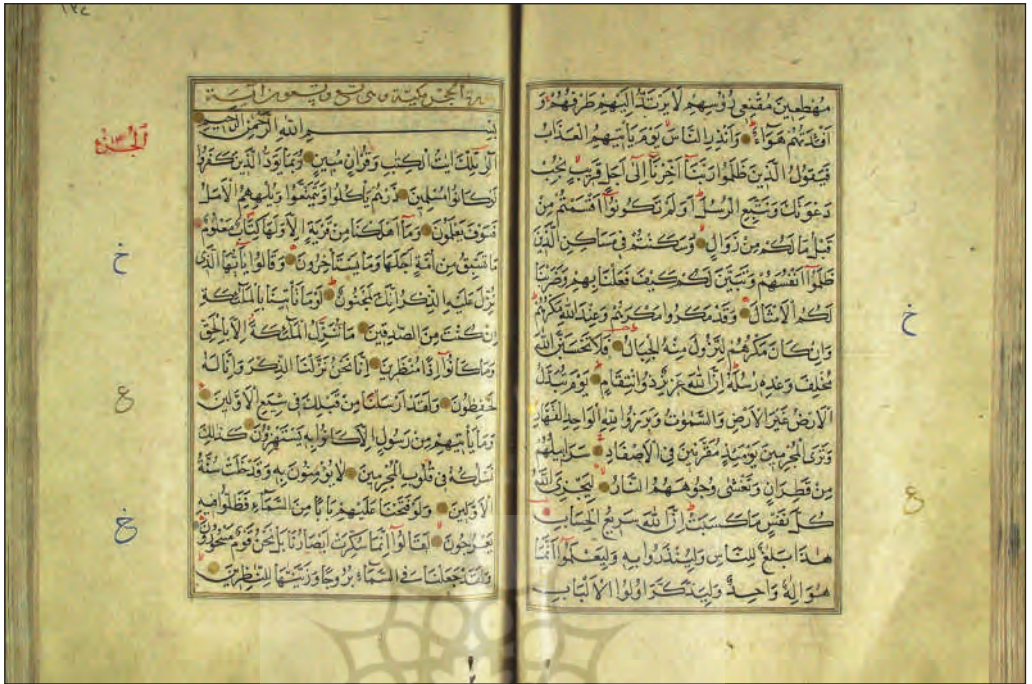 مُهْطِعِينَ مُقْنِعِي رُءُوسِهِمْ لَا يَرْتَدُّ إِلَيْهِمْ طَرْفُهُمْ وَ
اَفْئِدَتُهُمْ هَوَآءٌ وَاَنْذِرِ النَّاسَ يَوْمَ يَأْتِيهِمُ الْعَذَابُ
فَيَقُولُ الَّذِينَ ظَلَمُوا رَبَّنَآ اَخِّرْنَآ اِلٰٓى اَجَلٍ قَرِيبٍ نُجِبْ
دَعْوَتَكَ وَنَتَّبِعِ الرُّسُلَ اَوَلَمْ تَكُونُوٓا اَقْسَمْتُمْ مِنْ
قَبْلُ مَا لَكُمْ مِنْ زَوَالٍ وَسَكَنْتُمْ فِي مَسَاكِنِ الَّذِينَ
ظَلَمُوٓا اَنْفُسَهُمْ وَتَبَيَّنَ لَكُمْ كَيْفَ فَعَلْنَا بِهِمْ وَضَرَبْنَا
لَكُمُ الْاَمْثَالَ وَقَدْ مَكَرُوا مَكْرَهُمْ وَعِنْدَ اللّٰهِ مَكْرُهُمْ
وَاِنْ كَانَ مَكْرُهُمْ لِتَزُولَ مِنْهُ الْجِبَالُ فَلَا تَحْسَبَنَّ اللّٰهَ
مُخْلِفَ وَعْدِهِ رُسُلَهُ اِنَّ اللّٰهَ عَزِيزٌ ذُو انْتِقَامٍ يَوْمَ تُبَدَّلُ
الْاَرْضُ غَيْرَ الْاَرْضِ وَالسَّمٰوٰتُ وَبَرَزُوا لِلّٰهِ الْوَاحِدِ الْقَهَّارِ
وَتَرَى الْمُجْرِمِينَ يَوْمَئِذٍ مُقَرَّنِينَ فِي الْاَصْفَادِ سَرَابِيلُهُمْ
مِنْ قَطِرَانٍ وَتَغْشٰى وُجُوهَهُمُ النَّارُ لِيَجْزِيَ اللّٰهُ
كُلَّ نَفْسٍ مَا كَسَبَتْ اِنَّ اللّٰهَ سَرِيعُ الْحِسَابِ
هٰذَا بَلٰغٌ لِلنَّاسِ وَلِيُنْذَرُوا بِهِ وَلِيَعْلَمُوٓا اَنَّمَا
هُوَ اِلٰهٌ وَاحِدٌ وَلِيَذَّكَّرَ اُولُوا الْاَلْبَابِ
خ
ع
سورة الحجر مكية وهى تسع وتسعون آية
بِسْمِ اللّٰهِ الرَّحْمٰنِ الرَّحِيمِ
الٓرٰ تِلْكَ اٰيَاتُ الْكِتٰبِ وَقُرْاٰنٍ مُبِينٍ رُبَمَا يَوَدُّ الَّذِينَ كَفَرُوا
لَوْ كَانُوا مُسْلِمِينَ ذَرْهُمْ يَأْكُلُوا وَيَتَمَتَّعُوا وَيُلْهِهِمُ الْاَمَلُ
فَسَوْفَ يَعْلَمُونَ وَمَآ اَهْلَكْنَا مِنْ قَرْيَةٍ اِلَّا وَلَهَا كِتَابٌ مَعْلُومٌ
مَا تَسْبِقُ مِنْ اُمَّةٍ اَجَلَهَا وَمَا يَسْتَأْخِرُونَ وَقَالُوا يَآ اَيُّهَا الَّذِي
نُزِّلَ عَلَيْهِ الذِّكْرُ اِنَّكَ لَمَجْنُونٌ لَوْ مَا تَأْتِينَا بِالْمَلٰٓئِكَةِ
اِنْ كُنْتَ مِنَ الصّٰدِقِينَ مَا نُنَزِّلُ الْمَلٰٓئِكَةَ اِلَّا بِالْحَقِّ
وَمَا كَانُوٓا اِذًا مُنْظَرِينَ اِنَّا نَحْنُ نَزَّلْنَا الذِّكْرَ وَاِنَّا لَهُ
لَحٰفِظُونَ وَلَقَدْ اَرْسَلْنَا مِنْ قَبْلِكَ فِي شِيَعِ الْاَوَّلِينَ
وَمَا يَأْتِيهِمْ مِنْ رَسُولٍ اِلَّا كَانُوا بِهِ يَسْتَهْزِؤُنَ كَذٰلِكَ
نَسْلُكُهُ فِي قُلُوبِ الْمُجْرِمِينَ لَا يُؤْمِنُونَ بِهِ وَقَدْ خَلَتْ سُنَّةُ
الْاَوَّلِينَ وَلَوْ فَتَحْنَا عَلَيْهِمْ بَابًا مِنَ السَّمَآءِ فَظَلُّوا فِيهِ
يَعْرُجُونَ لَقَالُوٓا اِنَّمَا سُكِّرَتْ اَبْصَارُنَا بَلْ نَحْنُ قَوْمٌ مَسْحُورُونَ
وَلَقَدْ جَعَلْنَا فِي السَّمَآءِ بُرُوجًا وَزَيَّنّٰهَا لِلنّٰظِرِينَ
خ
ع
خ